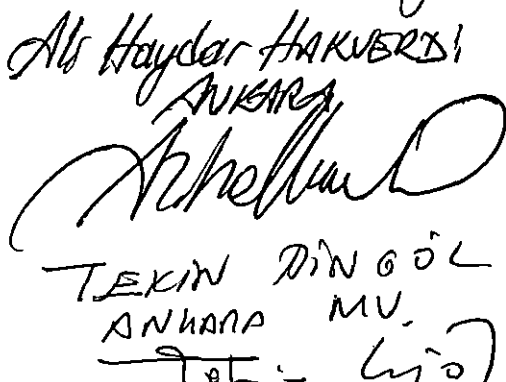 Ali Haydar HAKVERDİ
ANKARA
TEKİN BİNGÖL
ANKARA MV.